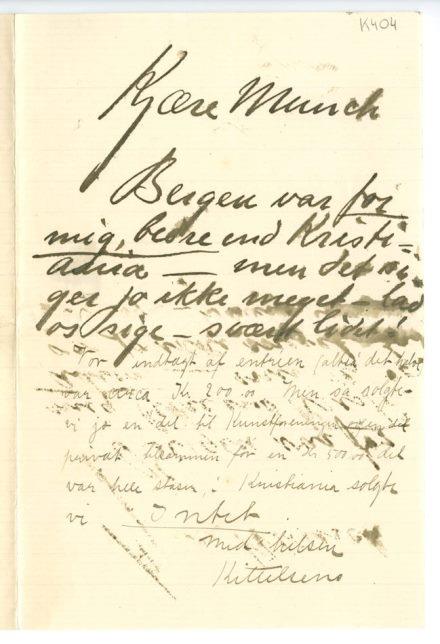 K404
Kjære Munch
Bergen var for
mig, bedre end Kristi-
ania — men det si-
ger jo ikke meget - lad
os sige - svært lidt!
Vor indtægt af entreen (altså det hele)
var circa Kr 200.00 Men så solgte
vi jo en del til Kunstforeningen
privat tilsammen for en Kr 500.00 det
var hele stasen! I Kristiania solgte
vi Intet.
Med hilsen
Kittelsens